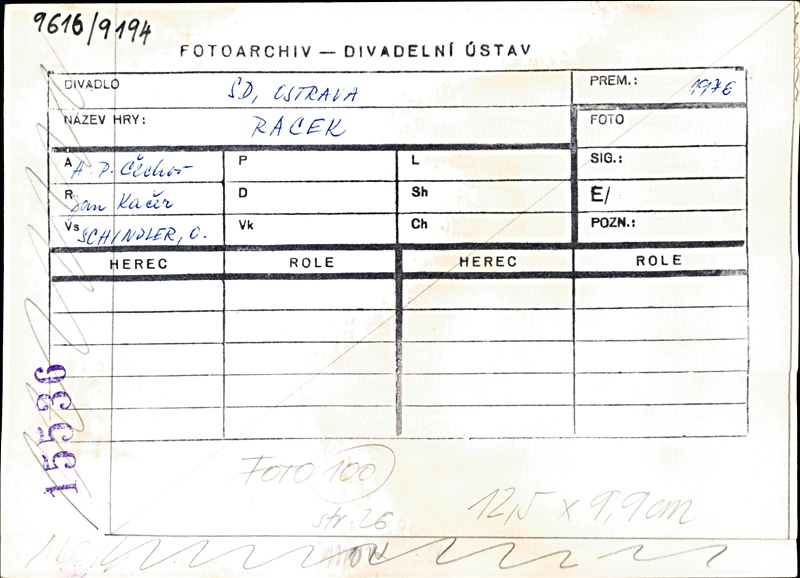 9616/9194
FOTOARCHIV — DIVADELNÍ ÚSTAV
DIVADLO SD, OSTRAVA PREM.: 1976
NÁZEV HRY: RACEK FOTO
A A. P. Čechov P L SIG.:
R Jan Kačer D Sh E/
Vs SCHINDLER, O. Vk Ch POZN.:
HEREC ROLE HEREC ROLE
15536
FOTO 100
str. 26
12,5 x 9,9 cm